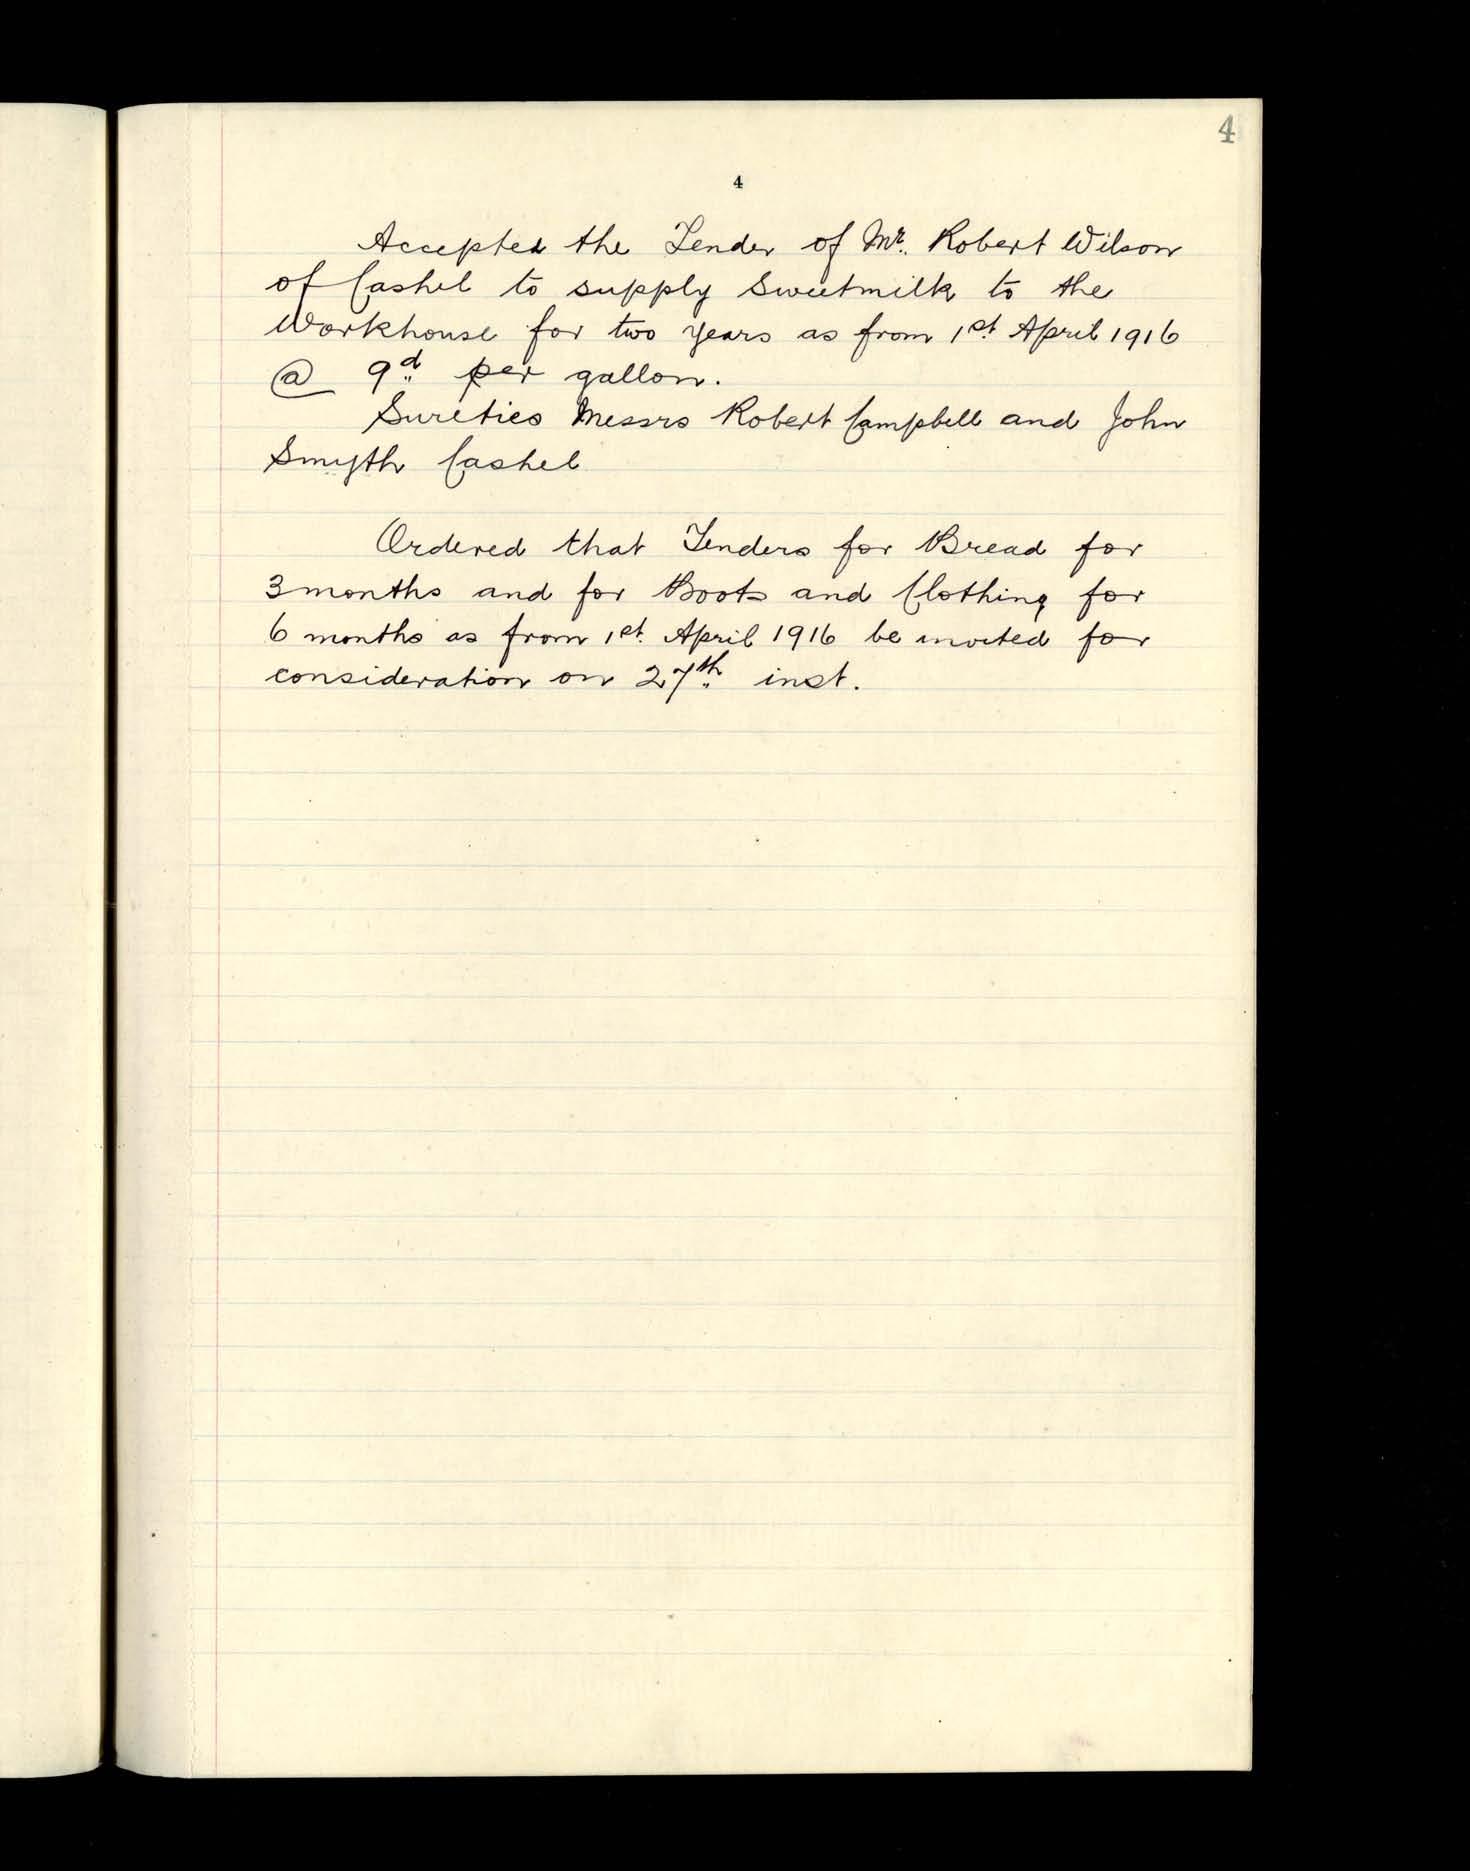 4
4
Accepted the Tender of Mr. Robert Wilson
of Cashel to supply Sweetmilk to the
Workhouse for two years as from 1st April 1916
@ 9d per gallon.
Sureties Messrs Robert Campbell and John
Smyth Cashel
Ordered that Tenders for Bread for
3 months and for Boots and Clothing for
6 months as from 1st April 1916 be invited for
consideration on 27th inst.